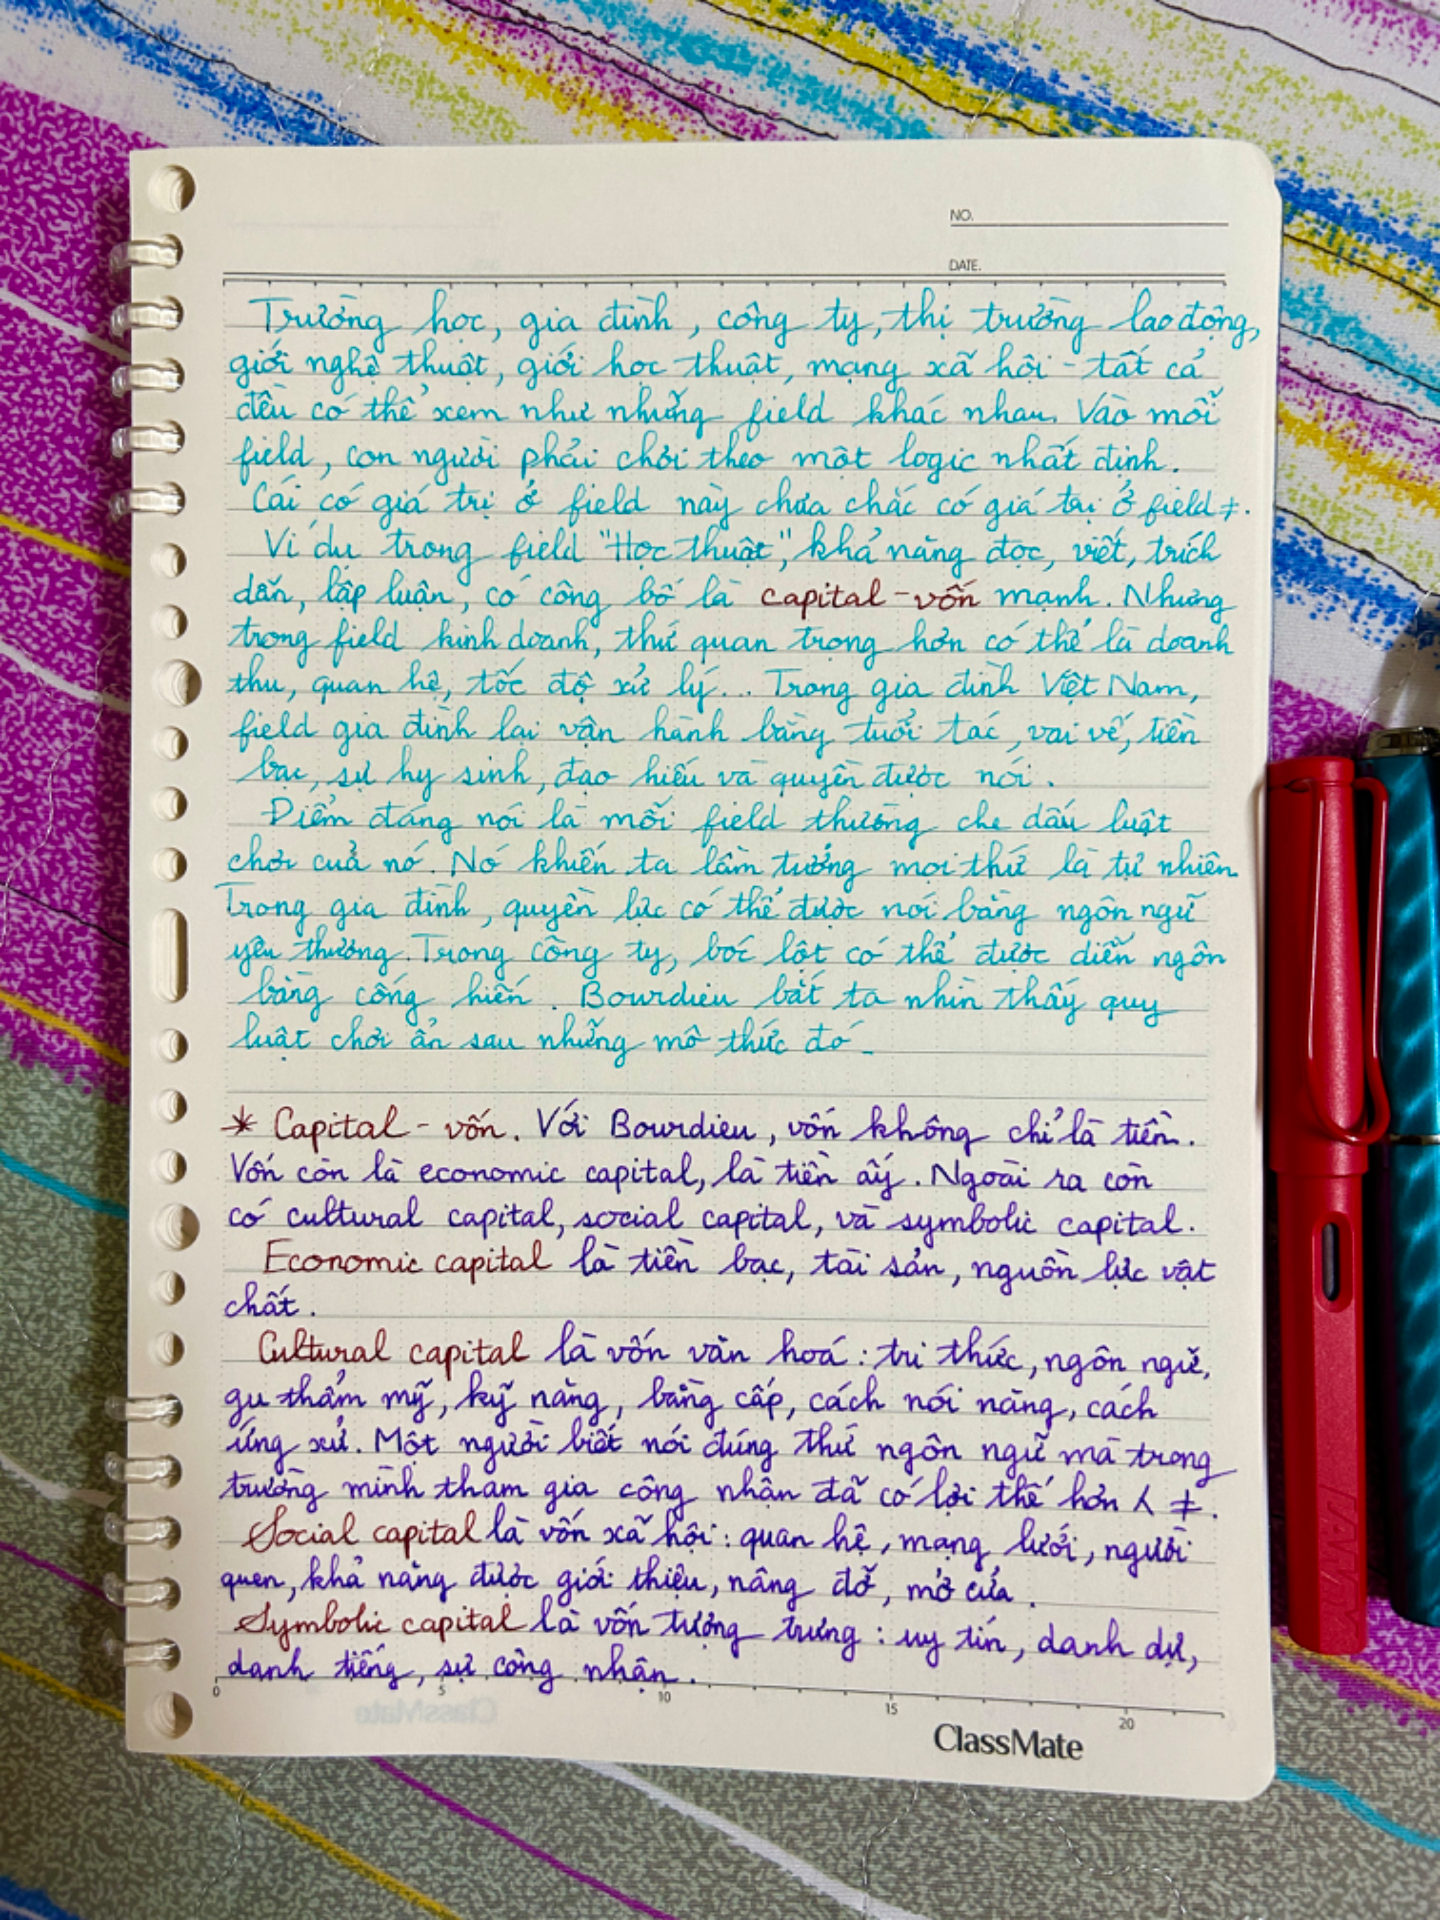 NO.
DATE.
Trường học, gia đình, công ty, thị trường lao động,
giới nghệ thuật, giới học thuật, mạng xã hội - tất cả
đều có thể xem như những field khác nhau. Vào mỗi
field, con người phải chơi theo một logic nhất định.
Cái có giá trị ở field này chưa chắc có giá trị ở field ≠.
Ví dụ trong field "Học thuật", khả năng đọc, viết, trích
dẫn, lập luận, có công bố là capital - vốn mạnh. Nhưng
trong field kinh doanh, thứ quan trọng hơn có thể là doanh
thu, quan hệ, tốc độ xử lý... Trong gia đình Việt Nam,
field gia đình lại vận hành bằng tuổi tác, vai vế, tiền
bạc, sự hy sinh, đạo hiếu và quyền được nói.
Điểm đáng nói là mỗi field thường che dấu luật
chơi của nó. Nó khiến ta lầm tưởng mọi thứ là tự nhiên
Trong gia đình, quyền lực có thể được nói bằng ngôn ngữ
yêu thương. Trong công ty, bóc lột có thể được diễn ngôn
bằng cống hiến. Bourdieu bắt ta nhìn thấy quy
luật chơi ẩn sau những mô thức đó.
* Capital - vốn. Với Bourdieu, vốn không chỉ là tiền.
Vốn còn là economic capital, là tiền ấy. Ngoài ra còn
có cultural capital, social capital, và symbolic capital.
Economic capital là tiền bạc, tài sản, nguồn lực vật
chất.
Cultural capital là vốn văn hoá: tri thức, ngôn ngữ,
gu thẩm mỹ, kỹ năng, bằng cấp, cách nói năng, cách
ứng xử. Một người biết nói đúng thứ ngôn ngữ mà trong
trường mình tham gia công nhận đã có lợi thế hơn 人 ≠.
Social capital là vốn xã hội: quan hệ, mạng lưới, người
quen, khả năng được giới thiệu, nâng đỡ, mở cửa.
Symbolic capital là vốn tượng trưng: uy tín, danh dự,
danh tiếng, sự công nhận.
0 5 10 15 20
ClassMate
LAMY